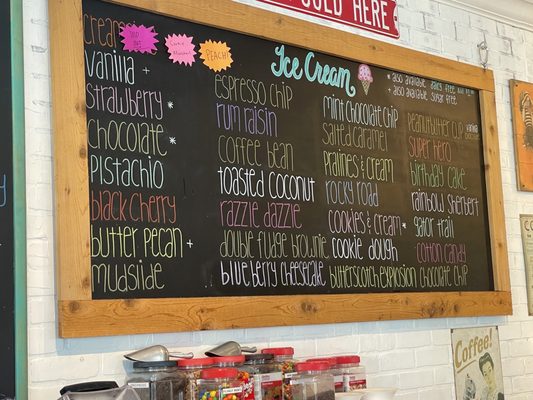 SOLD HERE
creams
PEACH!
Ice Cream
* also available dairy free
+ also available sugar free
vanilla +
strawberry *
chocolate *
pistachio
black cherry
butter pecan +
mudslide
espresso chip
rum raisin
coffee bean
toasted coconut
razzle dazzle
double fudge brownie
blueberry cheesecake
mint chocolate chip
salted caramel
pralines & cream
rocky road
cookies & cream *
cookie dough
butterscotch explosion
peanutbutter cup
super hero
birthday cake
rainbow sherbert
gator trail
cotton candy
chocolate chip
Coffee!